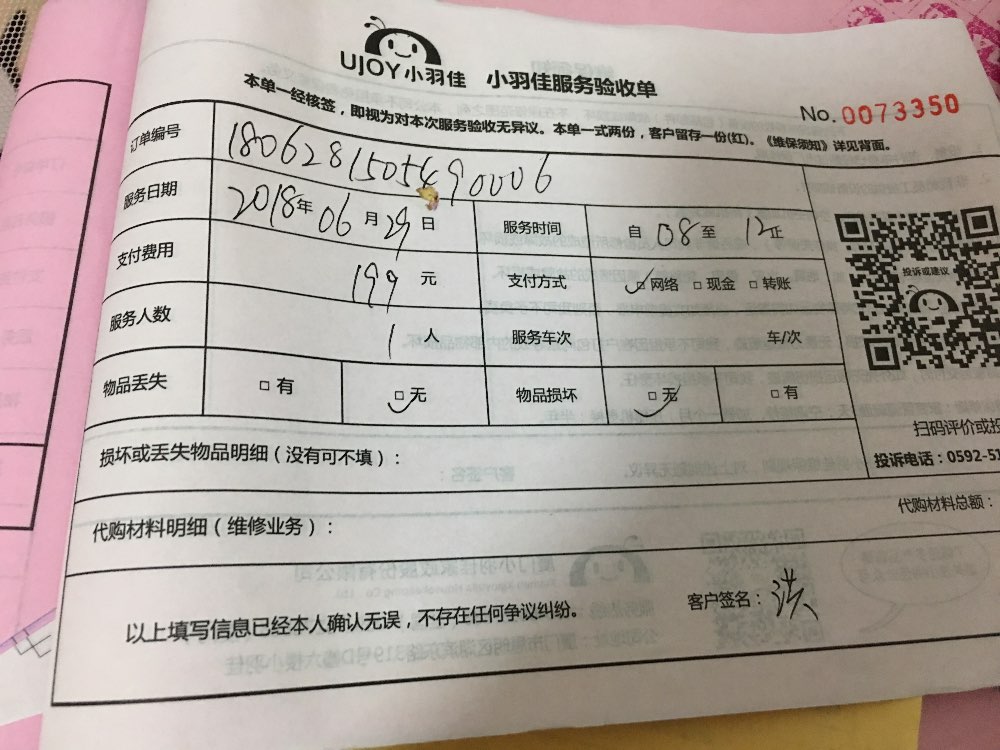 UJOY小羽佳 小羽佳服务验收单
No. 0073350
本单一经核签，即视为对本次服务验收无异议。本单一式两份，客户留存一份(红)。《维保须知》详见背面。
订单编号 1806281505490006
服务日期 2018年06月29日 服务时间 自08至12正
支付费用 199元 支付方式 □网络 □现金 □转账
服务人数 1人 服务车次 车/次
物品丢失 □有 □无 物品损坏 □无 □有
投诉或建议
扫码评价或投
损坏或丢失物品明细（没有可不填）：
投诉电话：0592-51
代购材料明细（维修业务）：
代购材料总额：
以上填写信息已经本人确认无误，不存在任何争议纠纷。
客户签名：洪